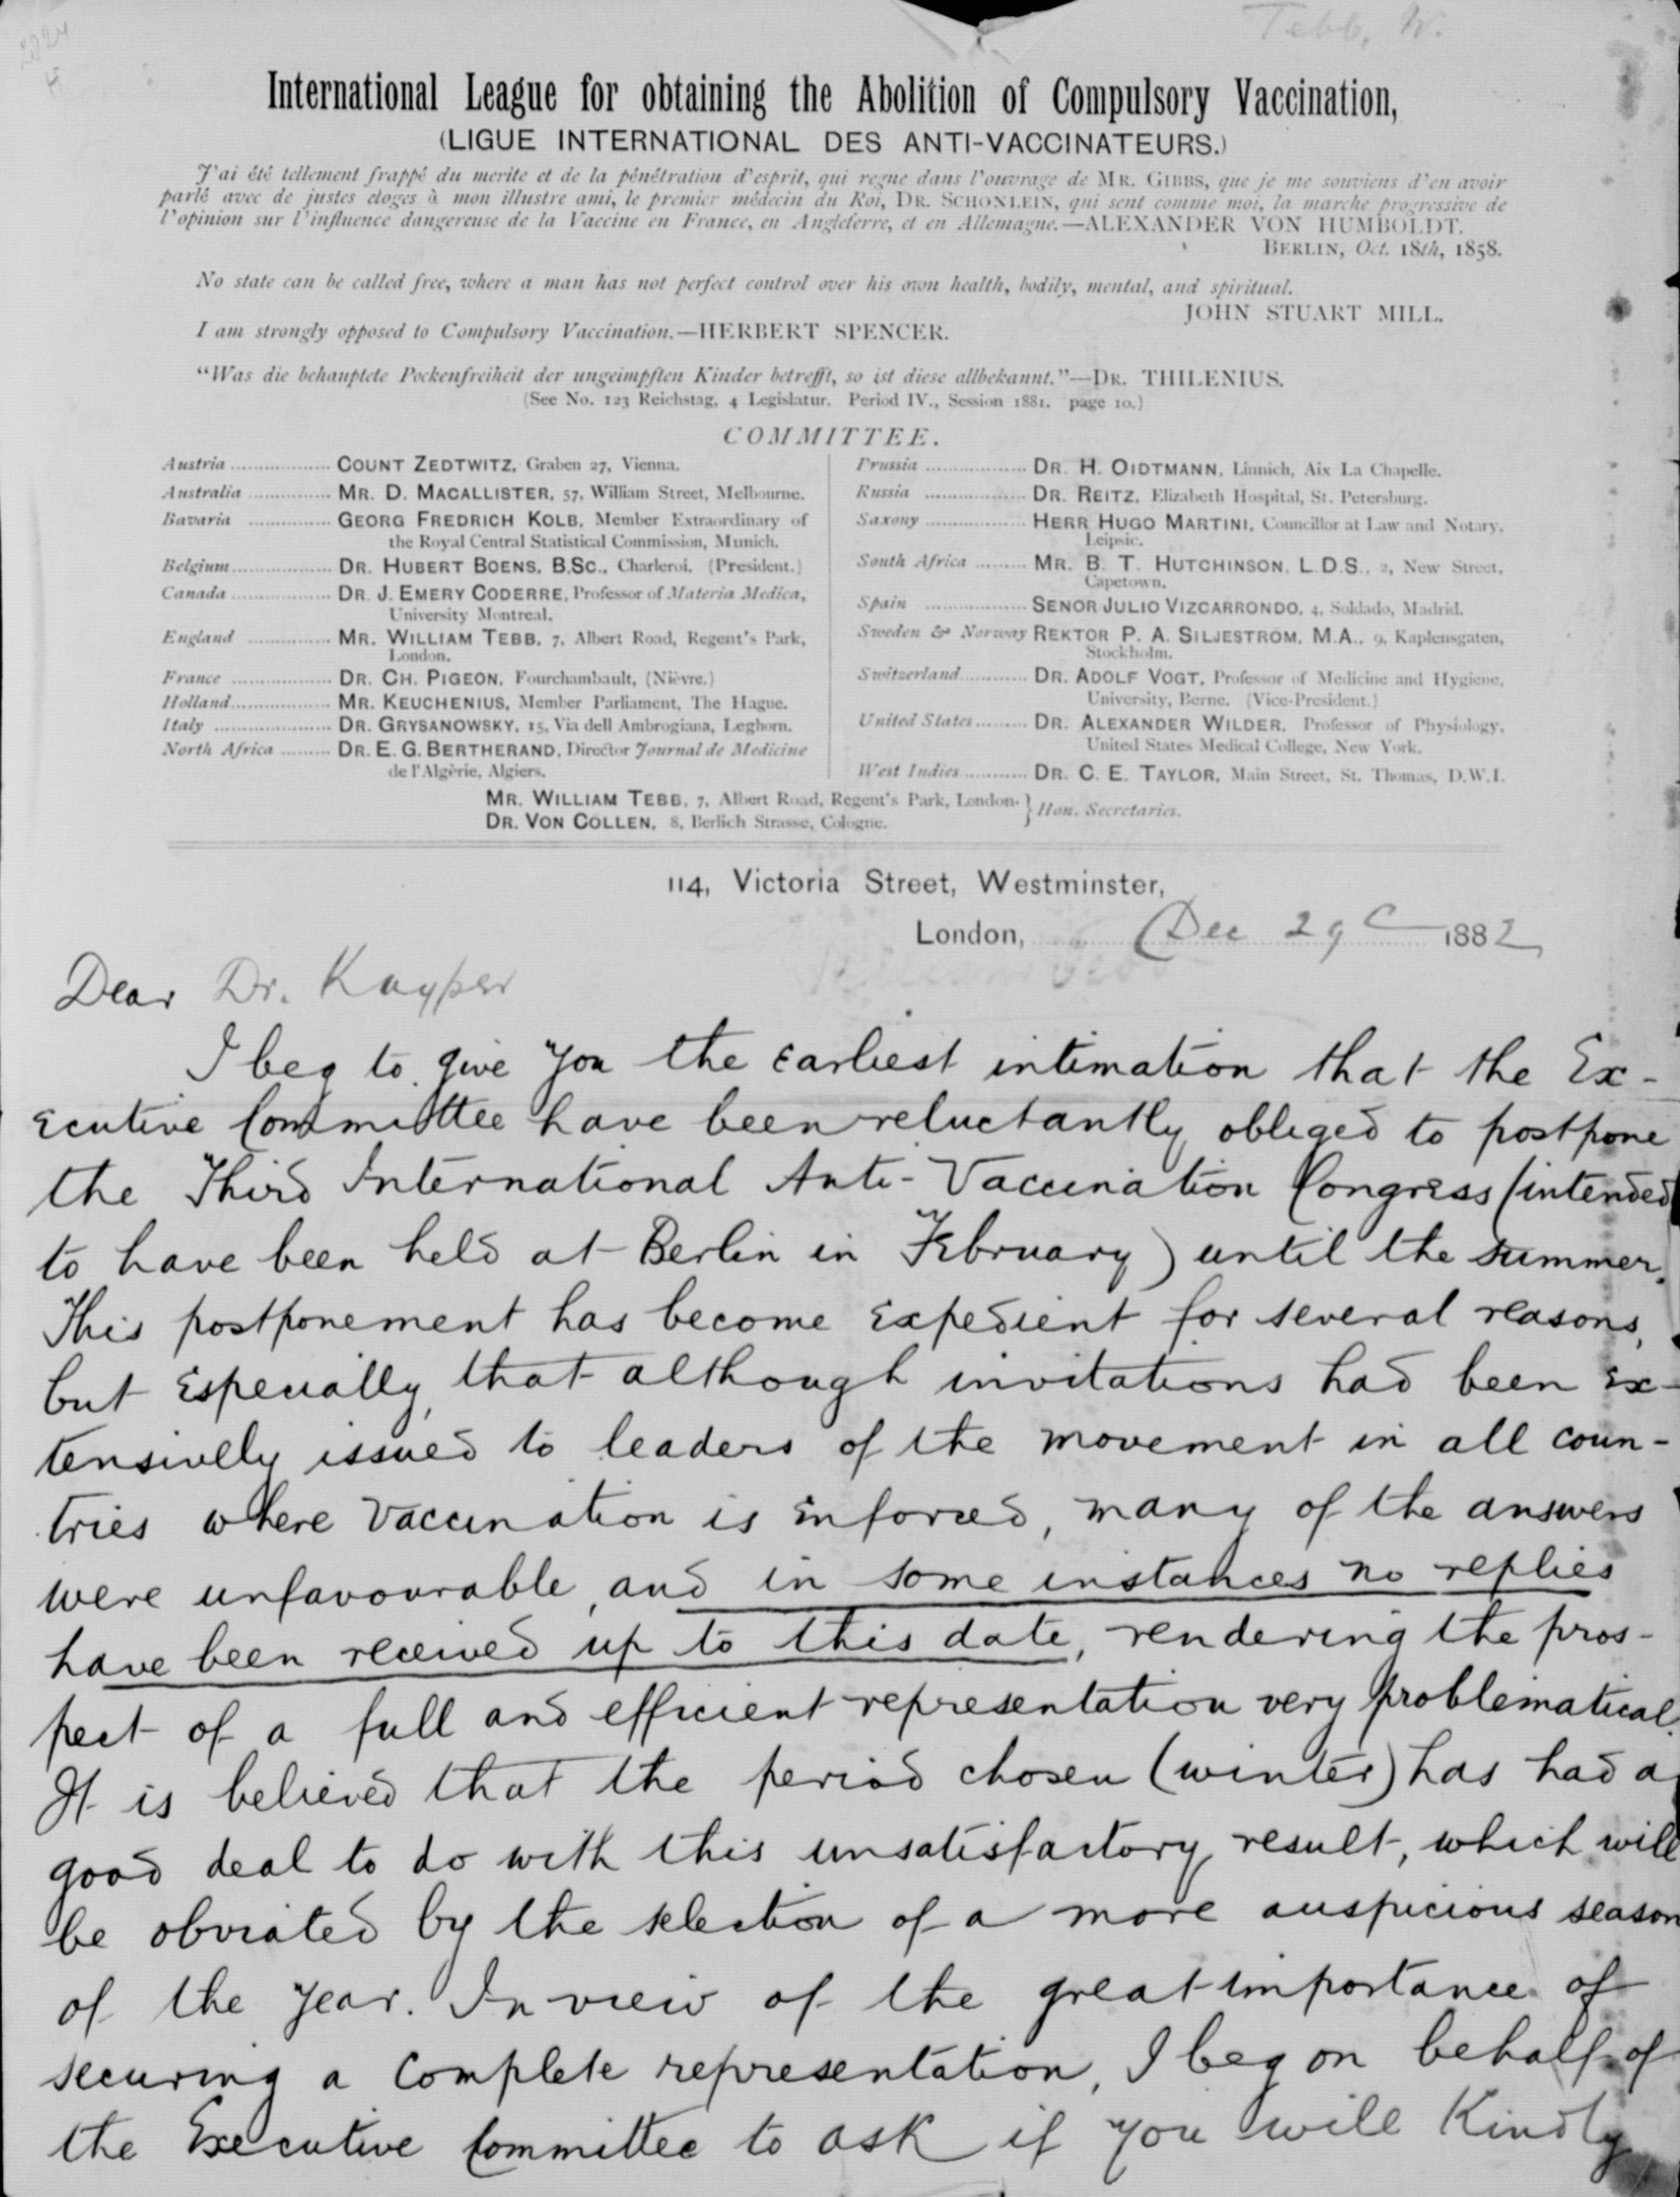 Tebb, W.
International League for obtaining the Abolition of Compulsory Vaccination,
(LIGUE INTERNATIONAL DES ANTI-VACCINATEURS.)
J'ai été tellement frappé du merite et de la pénétration d'esprit, qui regne dans l'ouvrage de MR. GIBBS, que je me souviens d'en avoir
parlé avec de justes éloges à mon illustre ami, le premier médecin du Roi, DR. SCHONLEIN, qui sent comme moi, la marche progressive de
l'opinion sur l'influence dangereuse de la Vaccine en France, en Angleterre, et en Allemagne.—ALEXANDER VON HUMBOLDT.
BERLIN, Oct. 18th, 1858.
No state can be called free, where a man has not perfect control over his own health, bodily, mental, and spiritual.
JOHN STUART MILL.
I am strongly opposed to Compulsory Vaccination.—HERBERT SPENCER.
"Was die behauptete Pockenfreiheit der ungeimpften Kinder betrefft, so ist diese allbekannt."—DR. THILENIUS.
(See No. 123 Reichstag, 4 Legislatur. Period IV., Session 1881. page 10.)
COMMITTEE.
Austria .................. COUNT ZEDTWITZ, Graben 27, Vienna.
Australia ............... MR. D. MACALLISTER, 57, William Street, Melbourne.
Bavaria ............... GEORG FREDRICH KOLB, Member Extraordinary of
the Royal Central Statistical Commission, Munich.
Belgium.................. DR. HUBERT BOENS, B.Sc., Charleroi. (President.)
Canada .................. DR. J. EMERY CODERRE, Professor of Materia Medica,
University Montreal.
England ............... MR. WILLIAM TEBB, 7, Albert Road, Regent's Park,
London.
France .................. DR. CH. PIGEON, Fourchambault, (Nièvre.)
Holland.................. MR. KEUCHENIUS, Member Parliament, The Hague.
Italy ..................... DR. GRYSANOWSKY, 15, Via dell Ambrogiana, Leghorn.
North Africa ......... DR. E. G. BERTHERAND, Director Journal de Medicine
de l'Algèrie, Algiers.
Prussia .................. DR. H. OIDTMANN, Linnich, Aix La Chapelle.
Russia .................. DR. REITZ, Elizabeth Hospital, St. Petersburg.
Saxony .................. HERR HUGO MARTINI, Councillor at Law and Notary,
Leipsic.
South Africa ......... MR. B. T. HUTCHINSON, L.D.S., 2, New Street,
Capetown.
Spain .................. SENOR JULIO VIZCARRONDO, 4, Soldado, Madrid.
Sweden & Norway REKTOR P. A. SILJESTROM, M.A., 9, Kaplensgaten,
Stockholm.
Switzerland............ DR. ADOLF VOGT, Professor of Medicine and Hygiene,
University, Berne. (Vice-President.)
United States......... DR. ALEXANDER WILDER, Professor of Physiology,
United States Medical College, New York.
West Indies............ DR. C. E. TAYLOR, Main Street, St. Thomas, D.W.I.
MR. WILLIAM TEBB, 7, Albert Road, Regent's Park, London. } Hon. Secretaries.
DR. VON COLLEN, 8, Berlich Strasse, Cologne.
114, Victoria Street, Westminster,
London, Dec 29 1882
Dear Dr. Kuyper
I beg to give you the earliest intimation that the Ex-
ecutive Committee have been reluctantly obliged to postpone
the Third International Anti-Vaccination Congress (intended
to have been held at Berlin in February) until the summer.
This postponement has become expedient for several reasons,
but especially, that although invitations had been ex-
tensively issued to leaders of the movement in all coun-
tries where vaccination is enforced, many of the answers
were unfavourable, and in some instances no replies
have been received up to this date, rendering the pros-
pect of a full and efficient representation very problematical.
It is believed that the period chosen (winter) has had a
good deal to do with this unsatisfactory result, which will
be obviated by the selection of a more auspicious season
of the year. In view of the great importance of
securing a complete representation, I beg on behalf of
the Executive Committee to ask if you will kindly